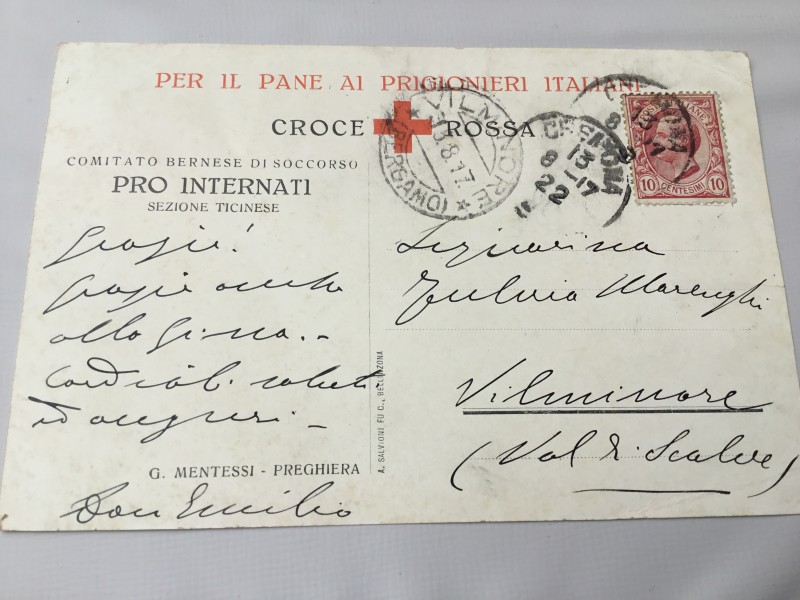 PER IL PANE AI PRIGIONIERI ITALIANI
CROCE ROSSA
COMITATO BERNESE DI SOCCORSO
PRO INTERNATI
SEZIONE TICINESE
VILMINORE
(BERGAMO)
13.8.17
CREMONA
13
8-17
22
POSTE ITALIANE
10 CENTESIMI 10
Grazie!
grazie anche
alla Gina. -
Cordiali saluti
ed auguri -
G. MENTESSI - PREGHIERA
Don Emilio
A. SALVIONI FU C., BELLINZONA
Signorina
Fulvia Marenghi
Vilminore
(Val di Scalve)